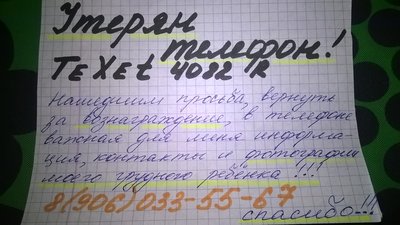 Утерян
телефон!
TEXEt 4082 R
Нашедшим просьба, вернуть
за вознаграждение, в телефоне
важная для меня информа-
ция, контакты и фотографии
моего грудного ребёнка !!!
8(906)033-55-67
спасибо...!!!